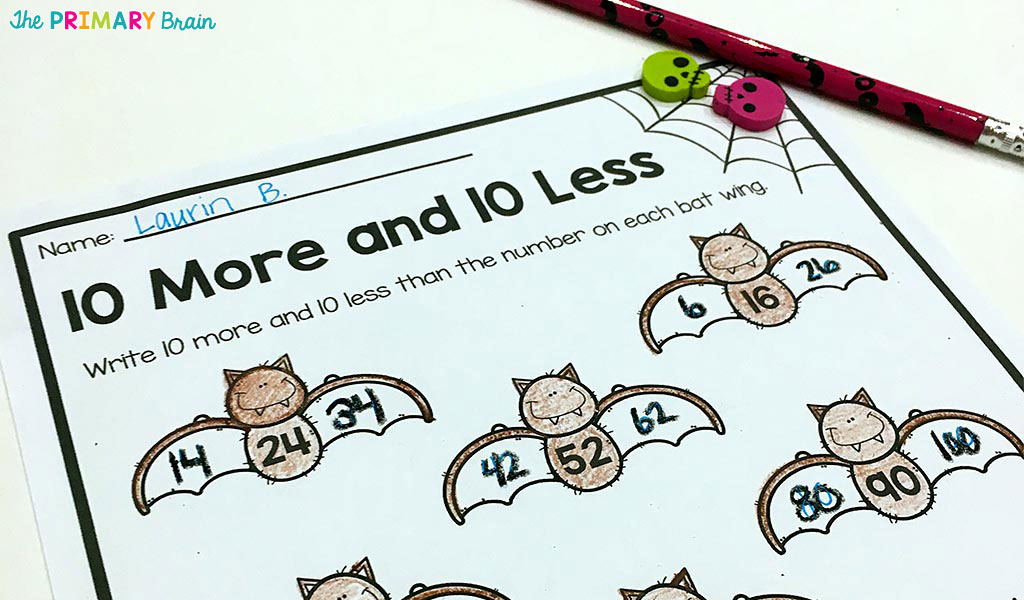 The PRIMARY Brain
Name: Laurin B.
10 More and 10 Less
Write 10 more and 10 less than the number on each bat wing.
6 16 26
14 24 34
42 52 62
80 90 100